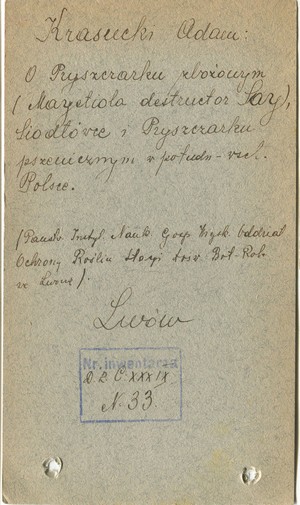 Krasucki Adam:
O Pryszczarku zbożowym
(Mayetiola destructor Say),
Siodłówce i Pryszczarku
pszenicznym w połudn-wsch.
Polsce.
(Państw. Instyt. Nauk. Gosp. Wiejsk. Oddział
Ochrony Roślin Stacji Bot-Rol.
we Lwowie).
Lwów
Nr. inwentarza
D. L. C. XXXIX.
N. 33.